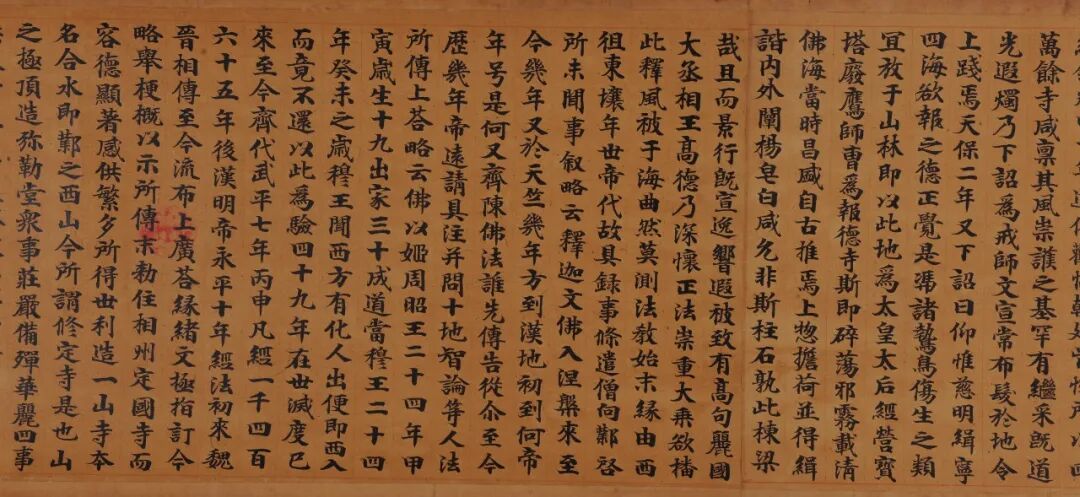 萬餘寺咸稟其風崇護之基罕有繼采既道
光遐燭乃下詔爲戒師文宣常布髮於地令
上踐焉天保二年又下詔曰仰惟慈明緝寧
四海欲報之德正覺是馮諸鷙鳥傷生之類
宜放于山林即以此地爲太皇太后經營寶
塔廢鷹師曹爲報德寺斯即碎蕩邪霧載清
佛海當時昌盛自古推焉上惣擔荷並得緝
諧内外闡揚皂白咸允非斯柱石孰此棟梁
哉且而景行既宣逸響遐被致有高句麗國
大丞相王高德乃深懷正法崇重大乗欲播
此釋風被于海曲然莫測法教始末縁由西
徂東壤年世帝代故具録事條遣僧向鄴啓
所未聞事叙略云釋迦文佛入涅槃來至
今幾年又於天竺幾年方到漢地初到何帝
年号是何又齊陳佛法誰先傳告從尒至今
歴幾年帝遠請具注并問十地智論等人法
所傳上荅略云佛以姬周昭王二十四年甲
寅歳生十九出家三十成道當穆王二十四
年癸未之歳穆王聞西方有化人出便即西入
而竟不還以此爲驗四十九年在世滅度已
來至今齊代武平七年丙申凡經一千四百
六十五年後漢明帝永平十年經法初來魏
晉相傳至今流布上廣荅縁緒文極指訂今
略舉梗概以示所傳末勑住相州定國寺而
容德顯著感供繁多所得世利造一山寺本
名合水即鄴之西山今所謂修定寺是也山
之極頂造弥勒堂衆事莊嚴備殫華麗四事